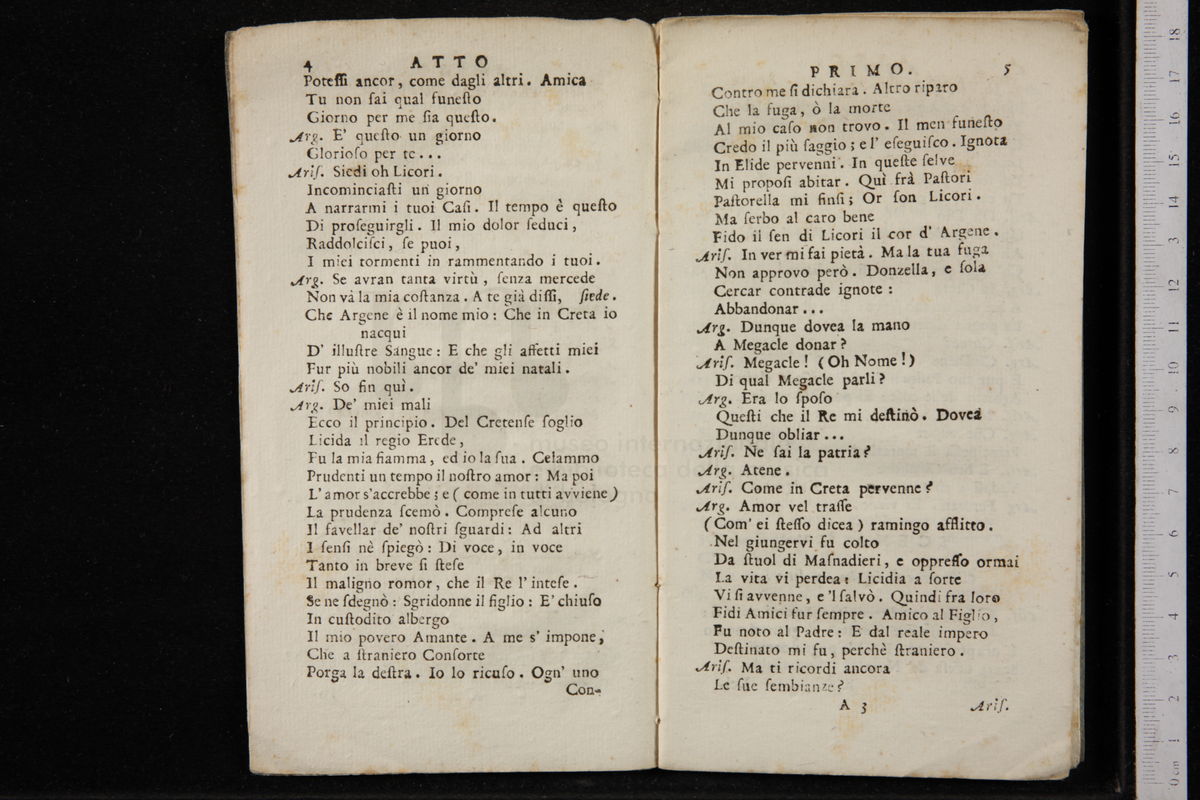 4 ATTO
Poteſſi ancor, come dagli altri. Amica
Tu non ſai qual funeſto
Giorno per me ſia queſto.
Arg. E' queſto un giorno
Glorioſo per te...
Ariſ. Siedi oh Licori.
Incominciaſti un giorno
A narrarmi i tuoi Caſi. Il tempo è queſto
Di proſeguirgli. Il mio dolor ſeduci,
Raddolciſci, ſe puoi,
I miei tormenti in rammentando i tuoi.
Arg. Se avran tanta virtù, ſenza mercede
Non và la mia coſtanza. A te già diſſi, ſiede.
Che Argene è il nome mio: Che in Creta io
nacqui
D' illuſtre Sangue: E che gli affetti miei
Fur più nobili ancor de' miei natali.
Ariſ. So fin quì.
Arg. De' miei mali
Ecco il principio. Del Cretenſe ſoglio
Licida il regio Erede,
Fu la mia fiamma, ed io la ſua. Celammo
Prudenti un tempo il noſtro amor: Ma poi
L' amor s'accrebbe; e (come in tutti avviene)
La prudenza ſcemò. Compreſe alcuno
Il favellar de' noſtri ſguardi: Ad altri
I ſenſi nè ſpiegò: Di voce, in voce
Tanto in breve ſi ſteſe
Il maligno romor, che il Re l' inteſe.
Se ne ſdegnò: Sgridonne il figlio: E' chiuſo
In cuſtodito albergo
Il mio povero Amante. A me s' impone,
Che a ſtraniero Conſorte
Porga la deſtra. Io lo ricuſo. Ogn' uno
Con-
PRIMO. 5
Contro me ſi dichiara. Altro riparo
Che la fuga, ò la morte
Al mio caſo non trovo. Il men funeſto
Credo il più ſaggio; e l' eſeguiſco. Ignota
In Elide pervenni. In queſte ſelve
Mi propoſi abitar. Quì frà Paſtori
Paſtorella mi finſi; Or ſon Licori.
Ma ſerbo al caro bene
Fido il ſen di Licori il cor d' Argene.
Ariſ. In ver mi fai pietà. Ma la tua fuga
Non approvo però. Donzella, e ſola
Cercar contrade ignote:
Abbandonar...
Arg. Dunque dovea la mano
A Megacle donar?
Ariſ. Megacle! (Oh Nome!)
Di qual Megacle parli?
Arg. Era lo ſpoſo
Queſti che il Re mi deſtinò. Dovea
Dunque obliar...
Ariſ. Ne ſai la patria?
Arg. Atene.
Ariſ. Come in Creta pervenne?
Arg. Amor vel traſſe
(Com' ei ſteſſo dicea) ramingo afflitto.
Nel giungervi fu colto
Da ſtuol di Maſnadieri, e oppreſſo ormai
La vita vi perdea: Licidia a ſorte
Vi ſi avvenne, e 'l ſalvò. Quindi fra loro
Fidi Amici fur ſempre. Amico al Figlio,
Fu noto al Padre: E dal reale impero
Deſtinato mi fu, perchè ſtraniero.
Ariſ. Ma ti ricordi ancora
Le ſue ſembianze?
A 3 Ariſ.